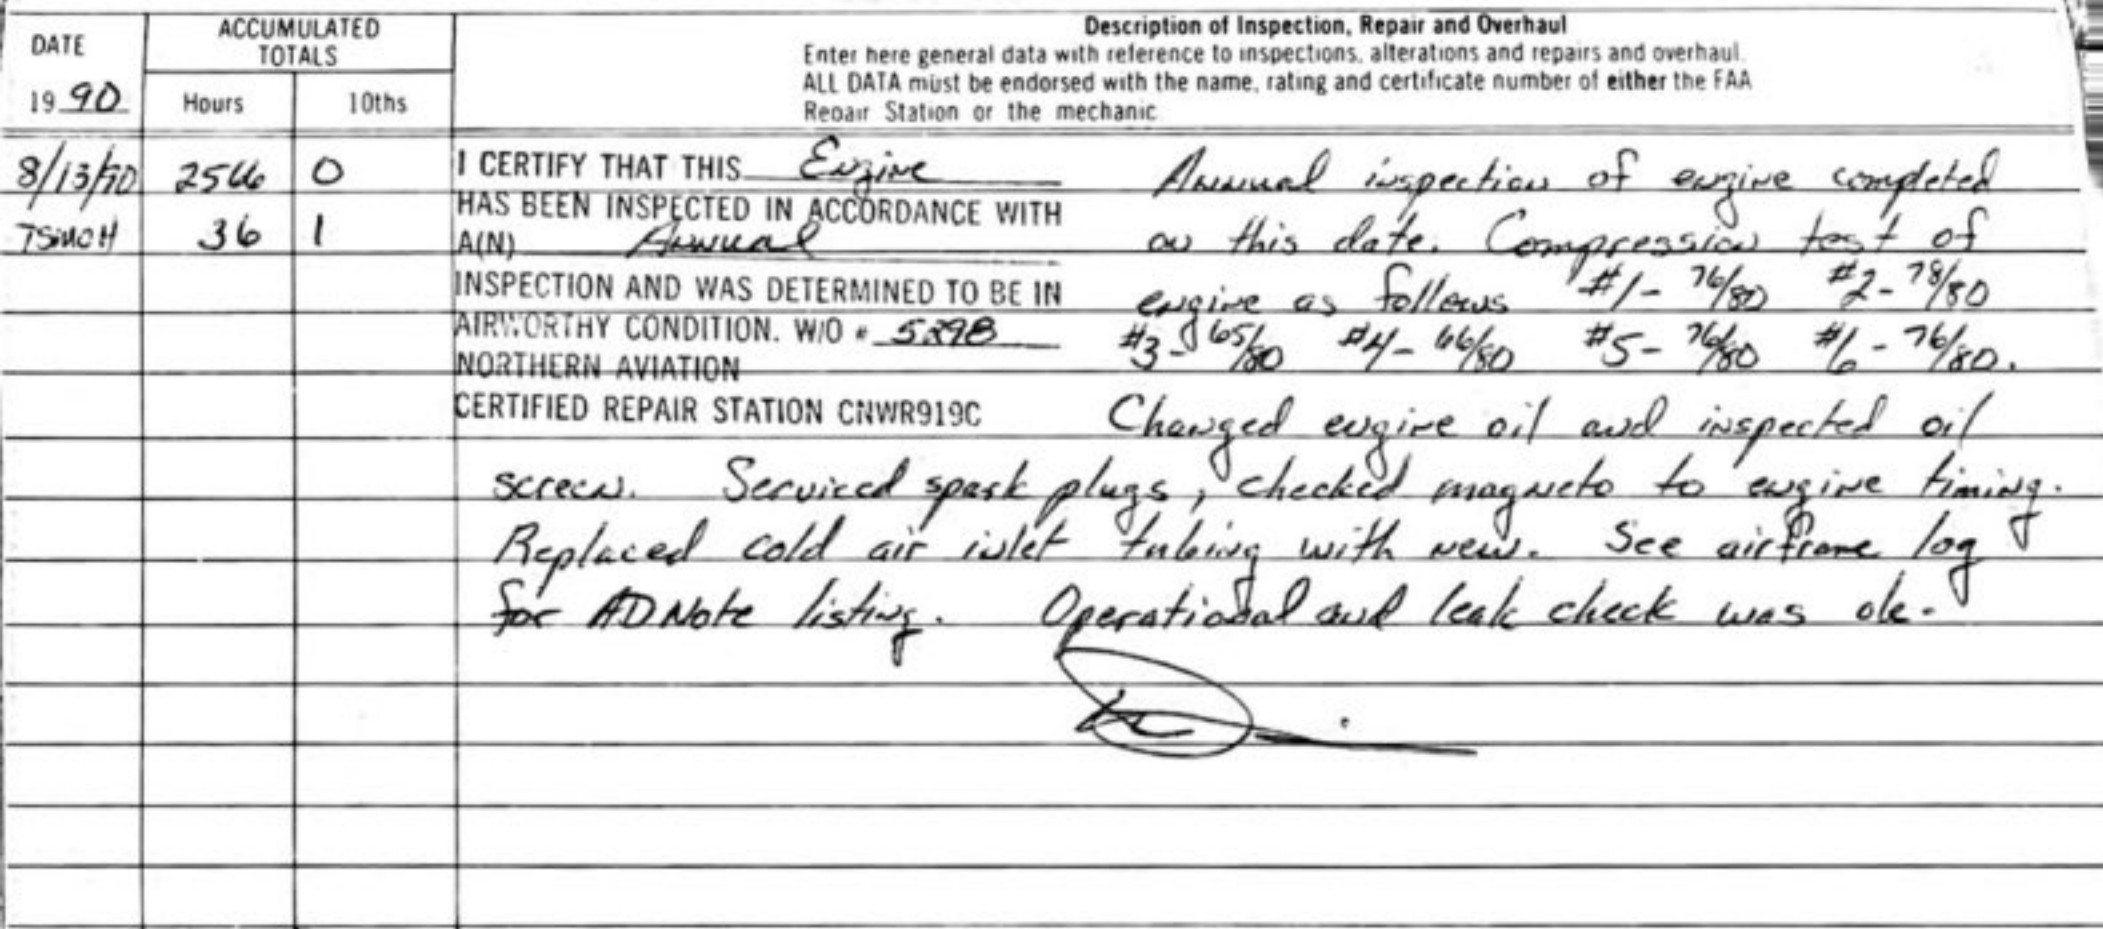 DATE
19 90
ACCUMULATED
TOTALS
Hours 10ths
Description of Inspection, Repair and Overhaul
Enter here general data with reference to inspections, alterations and repairs and overhaul.
ALL DATA must be endorsed with the name, rating and certificate number of either the FAA
Repair Station or the mechanic
8/13/90 2566 0
TSMOH 36 1
I CERTIFY THAT THIS Engine
HAS BEEN INSPECTED IN ACCORDANCE WITH
A(N) Annual
INSPECTION AND WAS DETERMINED TO BE IN
AIRWORTHY CONDITION. W/O # 5298
NORTHERN AVIATION
CERTIFIED REPAIR STATION CNWR919C
Annual inspection of engine completed
on this date. Compression test of
engine as follows #1- 76/80 #2- 78/80
#3- 65/80 #4- 66/80 #5- 76/80 #6- 76/80.
Changed engine oil and inspected oil
screen. Serviced spark plugs, checked magneto to engine timing.
Replaced cold air inlet tubing with new. See airframe log
for AD Note listing. Operational and leak check was ok.